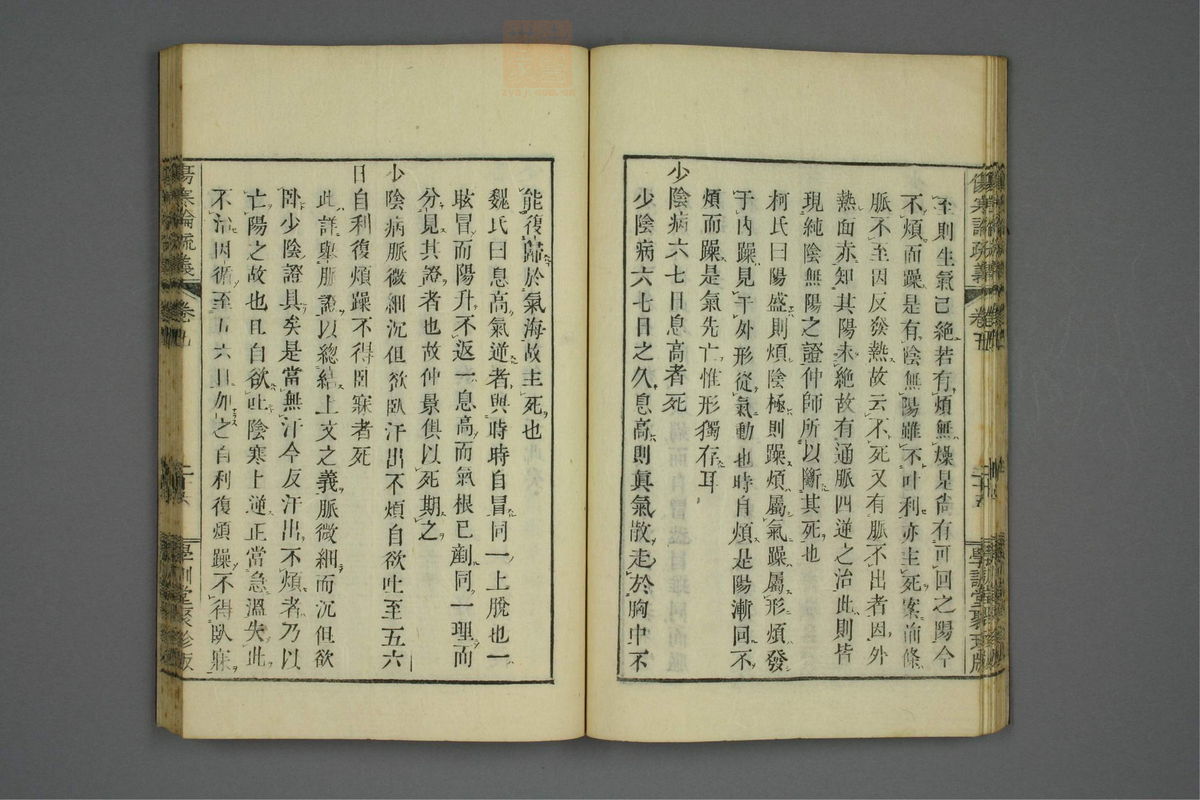 至則生氣已絶若有煩無燥是尙有可回之陽今
不煩而躁是有陰無陽雖不吐利亦主死案前條
脈不至因反發熱故云不死又有脈不出者因外
熱面赤知其陽未絶故有通脈四逆之治此則皆
現純陰無陽之證仲師所以斷其死也
柯氏曰陽盛則煩陰極則躁煩屬氣躁屬形煩發
于內躁見于外形從氣動也時自煩是陽漸回不
煩而躁是氣先亡惟形獨存耳
少陰病六七日息高者死
少陰病六七日之久息高則眞氣散走於胸中不
能復歸於氣海故主死也
魏氏曰息高氣逆者與時時自冒同一上脫也一
眩冒而陽升不返一息高而氣根已剷同一理而
分見其證者也故仲景俱以死期之
少陰病脈微細沉但欲臥汗出不煩自欲吐至五六
日自利復煩躁不得臥寐者死
此詳擧脈證以總結上文之義脈微細而沉但欲
臥少陰證具矣是當無汗今反汗出不煩者乃以
亡陽之故也且自欲吐陰寒上逆正當急溫失此
不治因循至五六日加之自利復煩躁不得臥寐
傷寒論疏義
卷五
學訓堂聚珍版